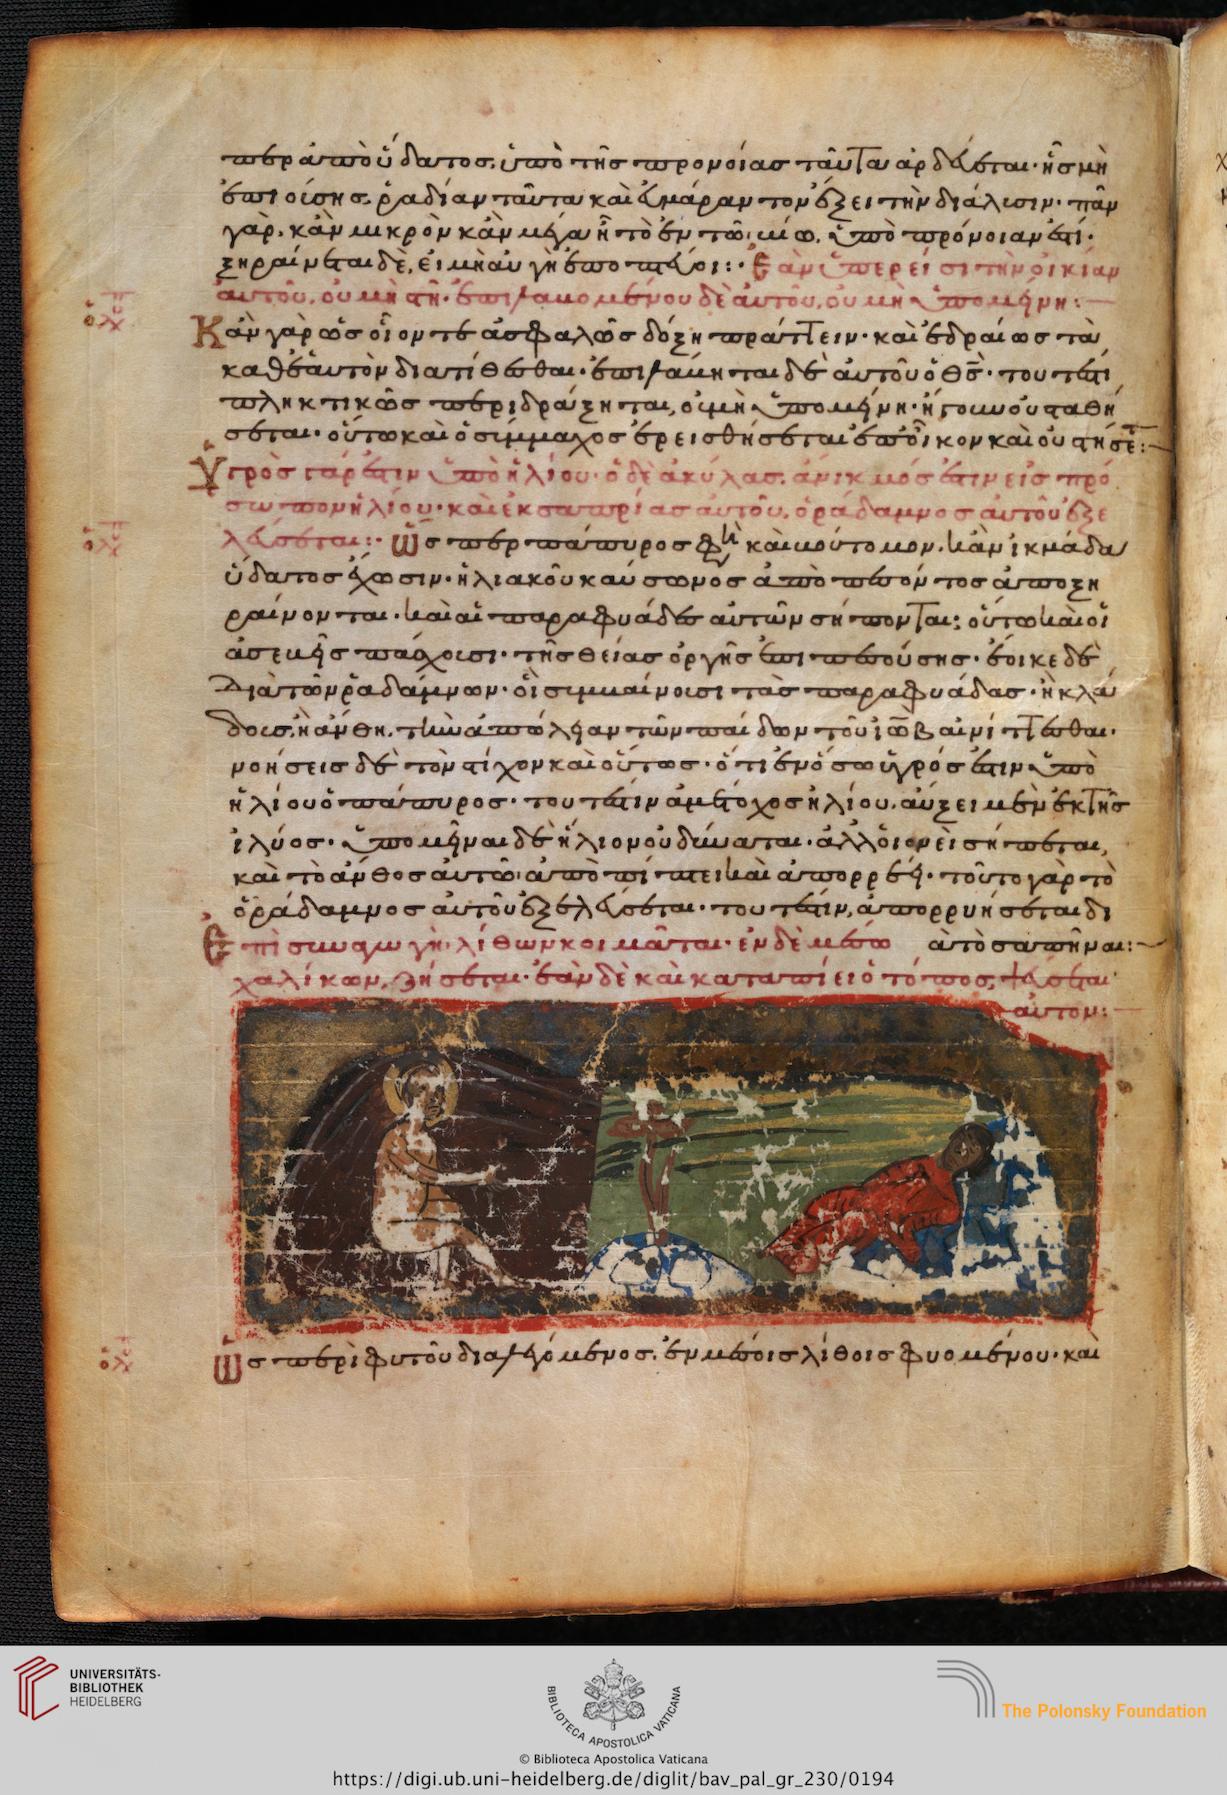 περ ἀπὸ ὕδατος, ὑπὸ τῆς προνοίας ταῦτα ἀρδεύεται· ἧς μὴ
ἐποισης, ῥαδίαν ταῦτα καὶ εὐμάραντον ἕξει τὴν διάλυσιν· πᾶν
γὰρ, κἂν μικρὸν κἂν μέγα ἦ τὸ ἐν τῶ, ὑπὸ πρόνοιαν ἐστί·
ξηραίνεται δὲ, εἰ μὴ αὐγὴ ἐποπτεύοι:· Ἐὰν ὑπερείσι τὴν οἰκίαν
αὐτοῦ, οὐ μὴ στῆ· ἐπιλαμομένου δὲ αὐτοῦ, οὐ μὴ ὑπομείνη:
Κἂν γὰρ ὡς οἷόν τε ἀσφαλῶς δόξη πράττειν· καὶ ἑδραίως τὰ
καθ' ἑαυτὸν διατίθεσθαι· ἐπιλάηται δὲ αὐτοῦ ὁ θς· τουτέστι
πληκτικῶς περιδράξηται, οὐ μὴ ὑπομείνη· ἤγουν οὐ σταθή
σεται· οὕτω καὶ ὁ σύμμαχος ἐρεισθήσεται ἐπ' οἶκον καὶ οὐ στήσετ:
Ὑγρὸς γάρ ἐστιν ὑπὸ ἡλίου· ὁ δὲ ἀκύλας. ἄνικμός ἐστιν εἰς πρό
σωπον ἡλίου· καὶ ἐκ σαπρίας αὐτοῦ, ὁ ῥάδαμνος αὐτοῦ ἐξε
λεύσεται:· Ὥσπερ πάπυρος φη καὶ μούτομον. κἂν ἰκμάδα
ὕδατος ἔχωσιν· ἡλιακοῦ καύσωνος ἀπὸ πεσόντος ἀποξη
ραίνονται· καὶ αἱ παραφυάδες αὐτῶν σήπονται: οὕτω καὶ οἱ
ἀσεεῖς πάσχουσι· τῆς θείας ὀργῆς ἐπιπεσούσης· ἔοικε δὲ
διὰ τῶν ῥαδάμνων· οἳ σημαίνουσι τὰς παραφυάδας· ἢ κλά
δους, ἢ ἄνθη. τὴν ἀπώλειαν τῶν παίδων τοῦ ἰὼβ αἰνίττεσθαι·
νοήσεις δὲ τὸν στίχον καὶ οὕτως· ὅτι ἐν ὅσω ὑγρός ἐστιν ὑπὸ
ἡλίου ὁ πάπυρος· τουτέστιν ἀμέτοχος ἡλίου, αὔξει μὲν ἐκ τῆς
ἰλύος· ὑπομεῖναι δὲ ἥλιον οὐ δύναται· ἀλλ' οἱονεὶ σήπεται,
καὶ τὸ ἄνθος αὐτῶ ἀποπίπτει καὶ ἀπορρέει· τοῦτο γὰρ τὸ
ὁ ῥάδαμνος αὐτοῦ ἐξελεύσεται· τουτέστιν, ἀπορρυήσεται δι
Ἐπὶ συναγωγὴ λίθων κοιμᾶται· ἐν δὲ μέσω ὰ τὸ σαπῆναι:
χαλίκων, ζήσεται· ἐὰν δὲ καὶ καταπίει ὁ τόπος, ψεύσεται
αὐτόν:
Ὡς περὶ φυτοῦ διαλεγόμενος. ἐν μέσοις λίθοις φυομένου· καὶ
UNIVERSITÄTS-
BIBLIOTHEK
HEIDELBERG
BIBLIOTECA APOSTOLICA VATICANA
The Polonsky Foundation
© Biblioteca Apostolica Vaticana
https://digi.ub.uni-heidelberg.de/diglit/bav_pal_gr_230/0194